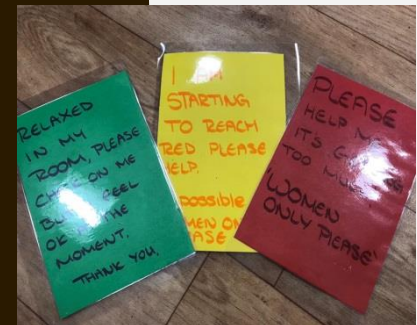 RELAXED
IN MY
ROOM, PLEASE
CHECK ON ME
BUT I FEEL
OK AT THE
MOMENT.
THANK YOU.
I AM
STARTING
TO REACH
RED PLEASE
HELP.
possible
PLEASE
HELP ME
IT'S
TOO MUCH
'WOMEN
ONLY PLEASE'